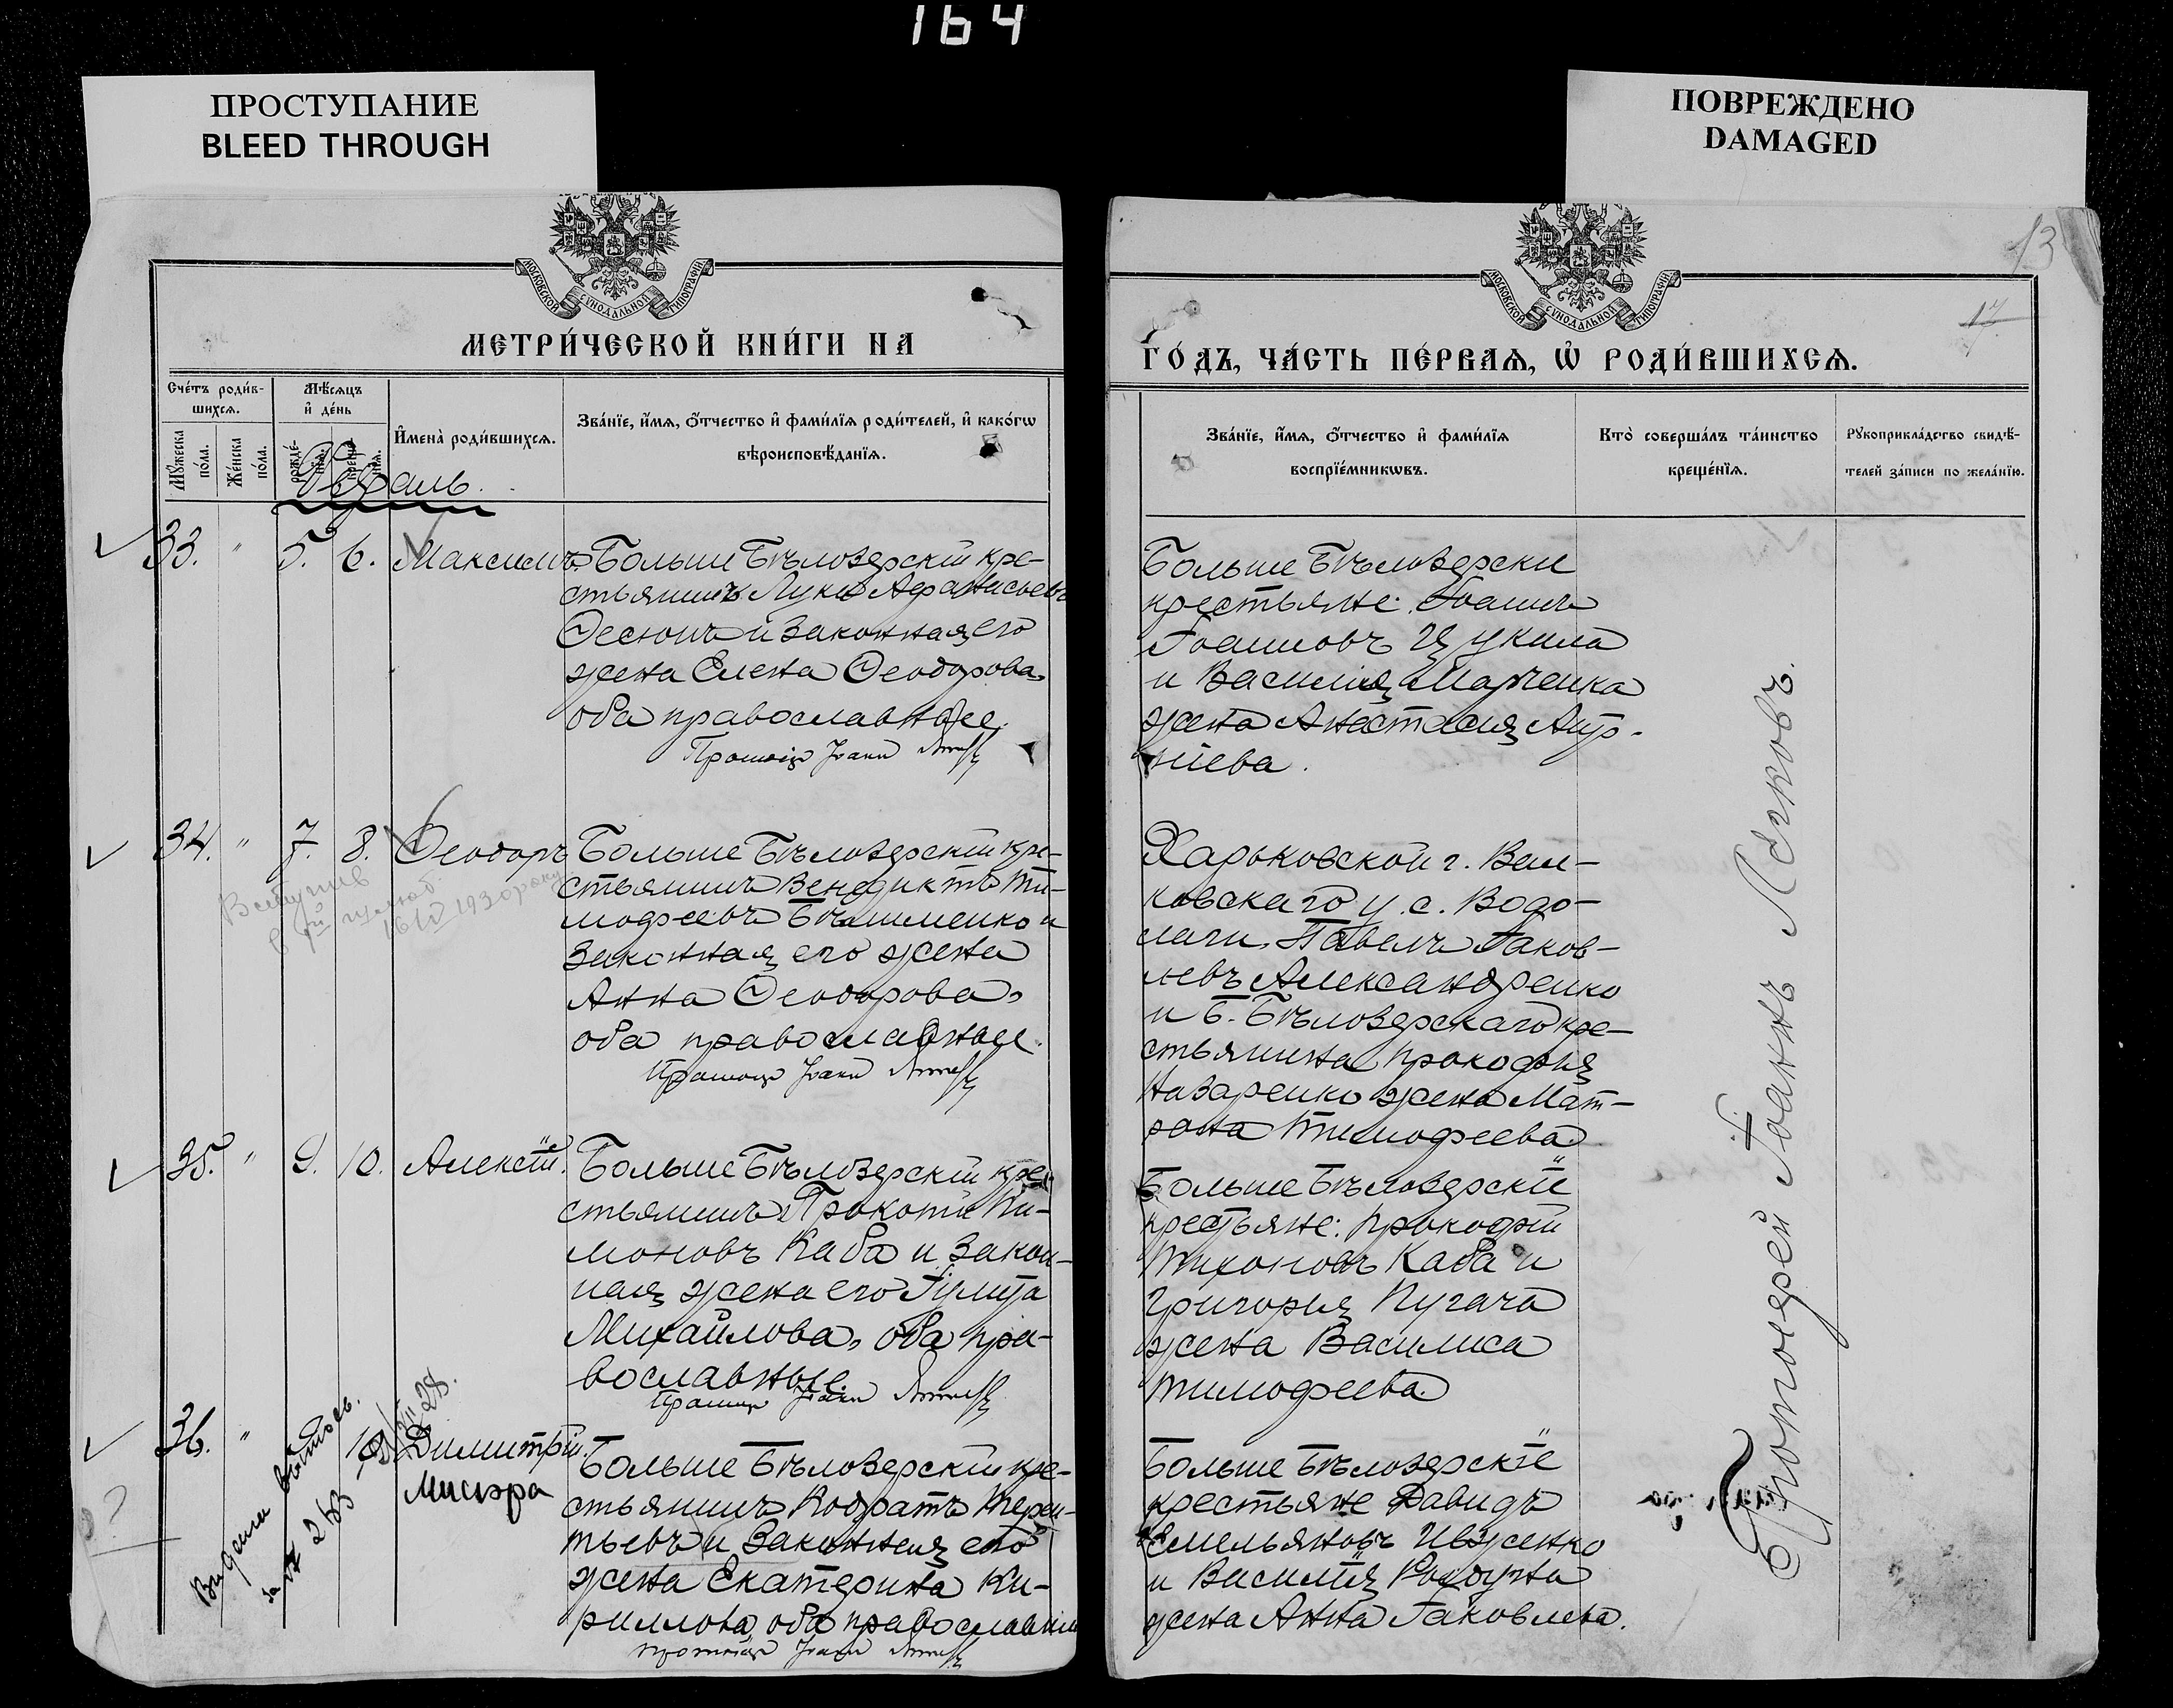 164
ПРОСТУПАНИЕ
BLEED THROUGH
ПОВРЕЖДЕНО
DAMAGED
МОСКОВСКОЙ СѴНОДАЛЬНОЙ ТИПОГРАФІИ
МЕТРИ́ЧЕСКОЙ КНИ́ГИ НА
Сче́тъ роди́в-
шихсѧ.
Мꙋ́жеска
по́ла.
Же́нска
по́ла.
Мѣ́сѧцъ
и҆ де́нь
рожде́-
нїѧ.
креще́-
нїѧ.
И҆мена̀ роди́вшихсѧ.
Зва́нїе, и҆́мѧ, ѻ҆́тчество и҆ фами́лїѧ роди́телей, и҆ како́гѡ
вѣроисповѣ́данїѧ.
Февраль.
33. " 5. 6. Максимъ.
Больше Бѣлозерскій кре-
стьянинъ Лука Афанасьевъ
Ѳесюнъ и законная его
жена Елена Ѳеодорова,
оба православные.
34. " 7. 8. Ѳеодоръ
16/IV 1930 року
Больше Бѣлозерскій кре-
стьянинъ Венедиктъ Ти-
мофеевъ и
законная его жена
Анна Ѳеодорова,
оба православные.
35. " 9. 10. Алексѣй.
Больше Бѣлозерскій кре-
стьянинъ Прокопій
Каба и закон-
ная жена его Іулита
Михайлова, оба пра-
вославные.
36. " 10 Димитрій.
Мисюра
Видали витягъ.
Больше Бѣлозерскій кре-
стьянинъ Кодратъ Терен-
тьевъ и законная его
жена Екатерина Ки-
риллова, оба православные
13
17
МОСКОВСКОЙ СѴНОДАЛЬНОЙ ТИПОГРАФІИ
ГО́ДЪ, ЧА́СТЬ ПЕ́РВАѦ, Ѡ҆ РОДИ́ВШИХСѦ.
Зва́нїе, и҆́мѧ, ѻ҆́тчество и҆ фами́лїѧ
воспрїе́мникѡвъ.
Кто̀ соверша́лъ та́инство
креще́нїѧ.
Рꙋкоприкла́дство свидѣ́-
телей за́писи по жела́нїю.
Больше Бѣлозерскіе
крестьяне: Іоаннъ
Іоанновъ Цукила
и Василія Марченка
жена Анастасія Анд-
Харьковской г. Вал-
ковскаго у. с. Водо-
лаги, Павелъ Іаков-
левъ Александренко
и Б. Бѣлозерскаго кре-
стьянина Прокофія
Назаренко жена Мат-
рона Тимофеева.
Больше Бѣлозерскіе
крестьяне: Прокофій
Тихоновъ Каба и
Григорія Пугача
жена Василиса
Тимофеева.
Больше Бѣлозерскіе
крестьяне Давидъ
Емельяновъ Ивженко
и Василія
жена Анна Іаковлева.
Протоіерей Іоаннъ Лѣтковъ.